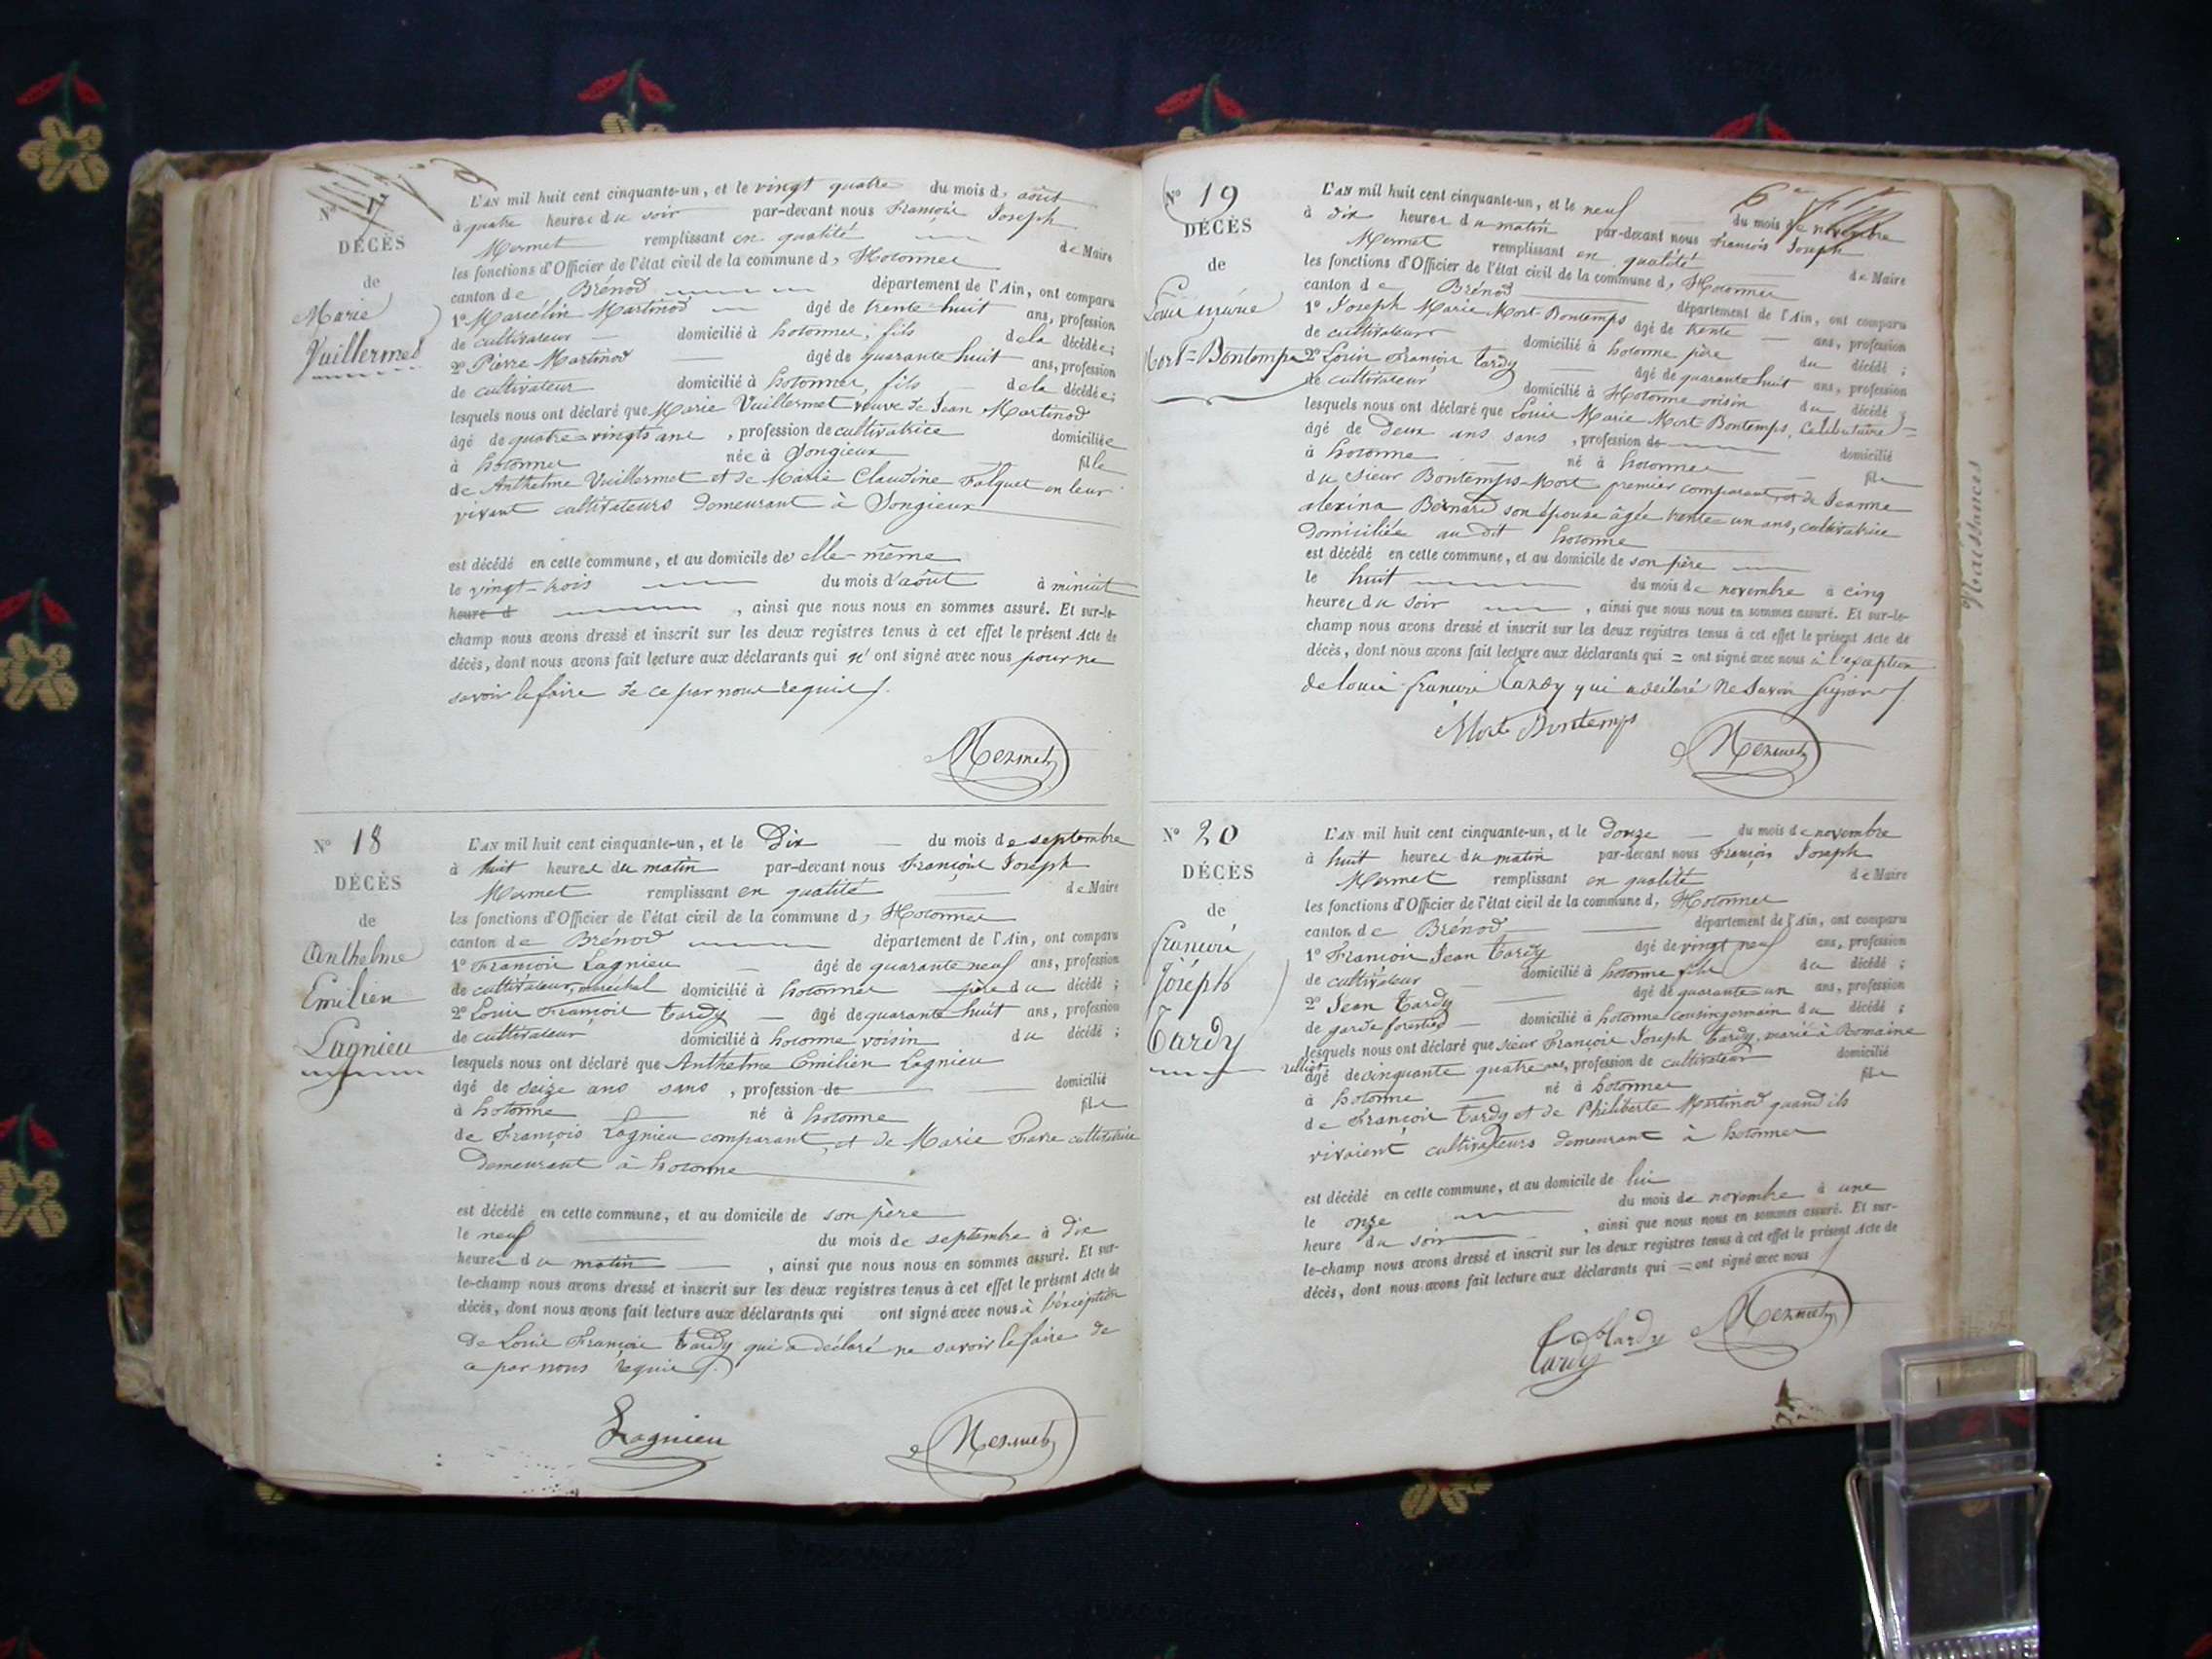 L'AN mil huit cent cinquante-un, et le vingt quatre du mois d' août
à quatre heures du soir par-devant nous François Joseph
Mermet remplissant en qualité de Maire
les fonctions d'Officier de l'état civil de la commune d' Hotonnes
canton de Brénod département de l'Ain, ont comparu
1º Marcélin Martinod âgé de trente huit ans, profession
de cultivateur domicilié à hotonnes, fils de la décédée;
2º Pierre Martinod âgé de quarante huit ans, profession
de cultivateur domicilié à hotonnes, fils de la décédée;
lesquels nous ont déclaré que Marie Vuillermet veuve de Jean Martinod
âgé de quatre-vingts ans, profession de cultivatrice domiciliée
à hotonnes née à Songieux fille
de Anthelme Vuillermet et de Marie Claudine Falquet en leur
vivant cultivateurs demeurant à Songieux
est décédé en cette commune, et au domicile de elle-même
le vingt-trois du mois d'août à minuit
heure d , ainsi que nous nous en sommes assuré. Et sur-le-
champ nous avons dressé et inscrit sur les deux registres tenus à cet effet le présent Acte de
décès, dont nous avons fait lecture aux déclarants qui n'ont signé avec nous pour ne
savoir le faire de ce par nous requis
Mermet
Nº
DÉCÈS
de
Marie
Vuillermet
Nº 18
DÉCÈS
de
Anthelme
Emilien
Lagnieu
L'AN mil huit cent cinquante-un, et le Dix du mois de septembre
à huit heures du matin par-devant nous François Joseph
Mermet remplissant en qualité de Maire
les fonctions d'Officier de l'état civil de la commune d' Hotonnes
canton de Brénod département de l'Ain, ont comparu
1º François Lagnieu âgé de quarante neuf ans, profession
de cultivateur, maréchal domicilié à hotonnes père du décédé;
2º Louis François Tardy âgé de quarante huit ans, profession
de cultivateur domicilié à hotonne voisin du décédé;
lesquels nous ont déclaré que Anthelme Emilien Lagnieu
âgé de seize ans sans, profession de domicilié
à hotonne né à hotonne fils
de François Lagnieu comparant et de Marie Favre cultivatrice
demeurant à hotonne
est décédé en cette commune, et au domicile de son père
le neuf du mois de septembre à dix
heures du matin, ainsi que nous nous en sommes assuré. Et sur-
le-champ nous avons dressé et inscrit sur les deux registres tenus à cet effet le présent Acte de
décès, dont nous avons fait lecture aux déclarants qui ont signé avec nous à l'exception
de Louis François Tardy qui a déclaré ne savoir le faire de
ce par nous requis
Lagnieu Mermet
Nº 19
DÉCÈS
de
Louis Marie
Mort=Bontemps
L'AN mil huit cent cinquante-un, et le neuf du mois de novembre
à dix heures du matin par-devant nous François Joseph
Mermet remplissant en qualité de Maire
les fonctions d'Officier de l'état civil de la commune d' Hotonnes
canton de Brénod département de l'Ain, ont comparu
1º Joseph Marie Mort-Bontemps âgé de trente ans, profession
de cultivateur domicilié à hotonne père du décédé;
2º Louis François Tardy âgé de quarante huit ans, profession
de cultivateur domicilié à Hotonne voisin du décédé;
lesquels nous ont déclaré que Louis Marie Mort-Bontemps, celibataire
âgé de Deux ans sans, profession de domicilié
à hotonne né à hotonnes fils
du sieur Bontemps-Mort premier comparant, et de Jeanne
alexina Bernard son épouse âgée trente-un ans, cultivatrice
domiciliée au dit hotonne
est décédé en cette commune, et au domicile de son père
le huit du mois de novembre à cinq
heures du soir, ainsi que nous nous en sommes assuré. Et sur-le-
champ nous avons dressé et inscrit sur les deux registres tenus à cet effet le présent Acte de
décès, dont nous avons fait lecture aux déclarants qui = ont signé avec nous à l'exception
de louis françois tardy qui a déclaré ne savoir signer
Mort Bontemps Mermet
Nº 20
DÉCÈS
de
françois
Joseph
Tardy
L'AN mil huit cent cinquante-un, et le douze du mois de novembre
à huit heures du matin par-devant nous François Joseph
Mermet remplissant en qualité de Maire
les fonctions d'Officier de l'état civil de la commune d' Hotonnes
canton de Brénod département de l'Ain, ont comparu
1º François Jean Tardy âgé de vingt neuf ans, profession
de cultivateur domicilié à hotonne fils du décédé;
2º Jean Tardy âgé de quarante-un ans, profession
de garde forestier domicilié à hotonne cousin germain du décédé;
lesquels nous ont déclaré que sieur François Joseph Tardy, marié à Romaine
âgé de cinquante quatre ans, profession de cultivateur domicilié
à hotonne né à hotonnes fils
de François Tardy et de Philiberte Martinod quand ils
vivaient cultivateurs demeurant à hotonnes
est décédé en cette commune, et au domicile de lui
le onze du mois de novembre à une
heure du soir, ainsi que nous nous en sommes assuré. Et sur-
le-champ nous avons dressé et inscrit sur les deux registres tenus à cet effet le présent Acte de
décès, dont nous avons fait lecture aux déclarants qui = ont signé avec nous
Tardy Tardy Mermet
Naissances